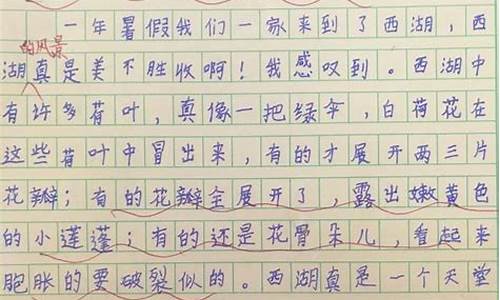 一年暑假我们一家来到了西湖，西
的风景
湖真是美不胜收啊！我感叹到。西湖中
有许多荷叶，真像一把绿伞，白荷花在
这些荷叶中冒出来，有的才展开两三片
花瓣；有的花瓣全展开了，露出嫩黄色
的小莲蓬；有的还是花骨朵儿，看起来
胞胀的要破裂似的。西湖真是一个天堂